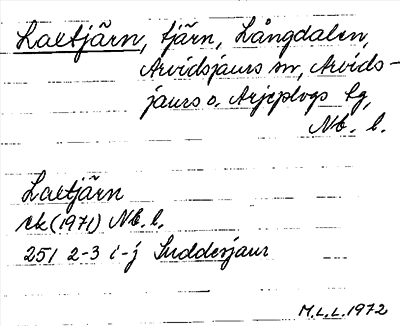 Laxtjärn, tjärn, Långdalen,
Arvidsjaurs sn, Arvids-
jaurs o. Arjeplogs tg,
Nb. l.
Laxtjärn
rk (1971) Nb. l.
25 I 2-3 i-j Suddesjaur
M.L.L. 1972